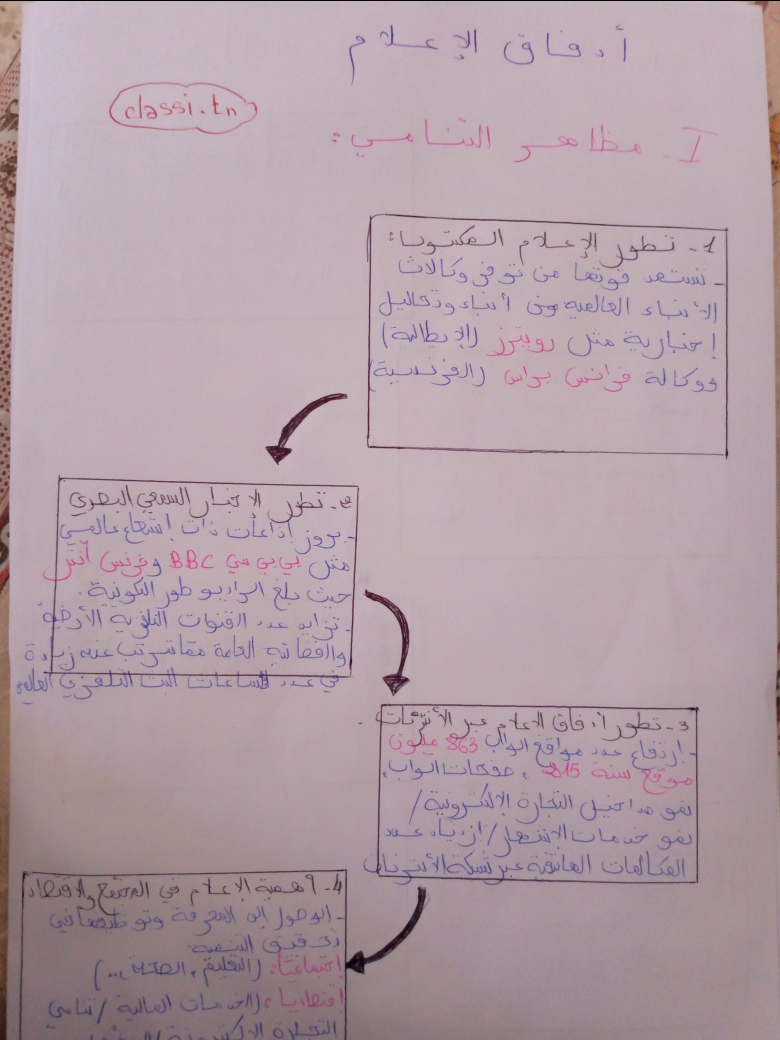 أدفاق الإعلام
classi.tn
I - مظاهر التنامي:
1- تطور الإعلام المكتوب:
- تستمد قوتها من توفر وكالات
الأنباء العالمية من أنباء وتحاليل
إخبارية مثل رويترز (الإيطالية)
ووكالة فرانس براس (الفرنسية)
2- تطور الإخبار السمعي البصري
- بروز إذاعات ذات إشعاع عالمي
مثل بي بي سي BBC وفرنس أنتر
حيث بلغ الراديو طور الكونية.
- تزايد عدد القنوات التلفزية الأرضية
والفضائية العامة مما ترتب عنه زيادة
في عدد ساعات البث التلفزي العالمي
3- تطور أدفاق الإعلام عبر الأنترنات.
- ارتفاع عدد مواقع الواب 863 مليون
موقع سنة 2015، صفحات الواب،
نمو مداخيل التجارة الإلكترونية/
نمو خدمات الإشهار/ ازدياد عدد
المكالمات الهاتفية عبر شبكة الأنترنات
4- أهمية الإعلام في المجتمع والاقتصاد
- الوصول إلى المعرفة وتوظيفها في
تحقيق التنمية
إجتماعيا: (التعليم، الصحة...)
اقتصاديا: (الخدمات المالية / تنامي
التجارة الإلكترونية/